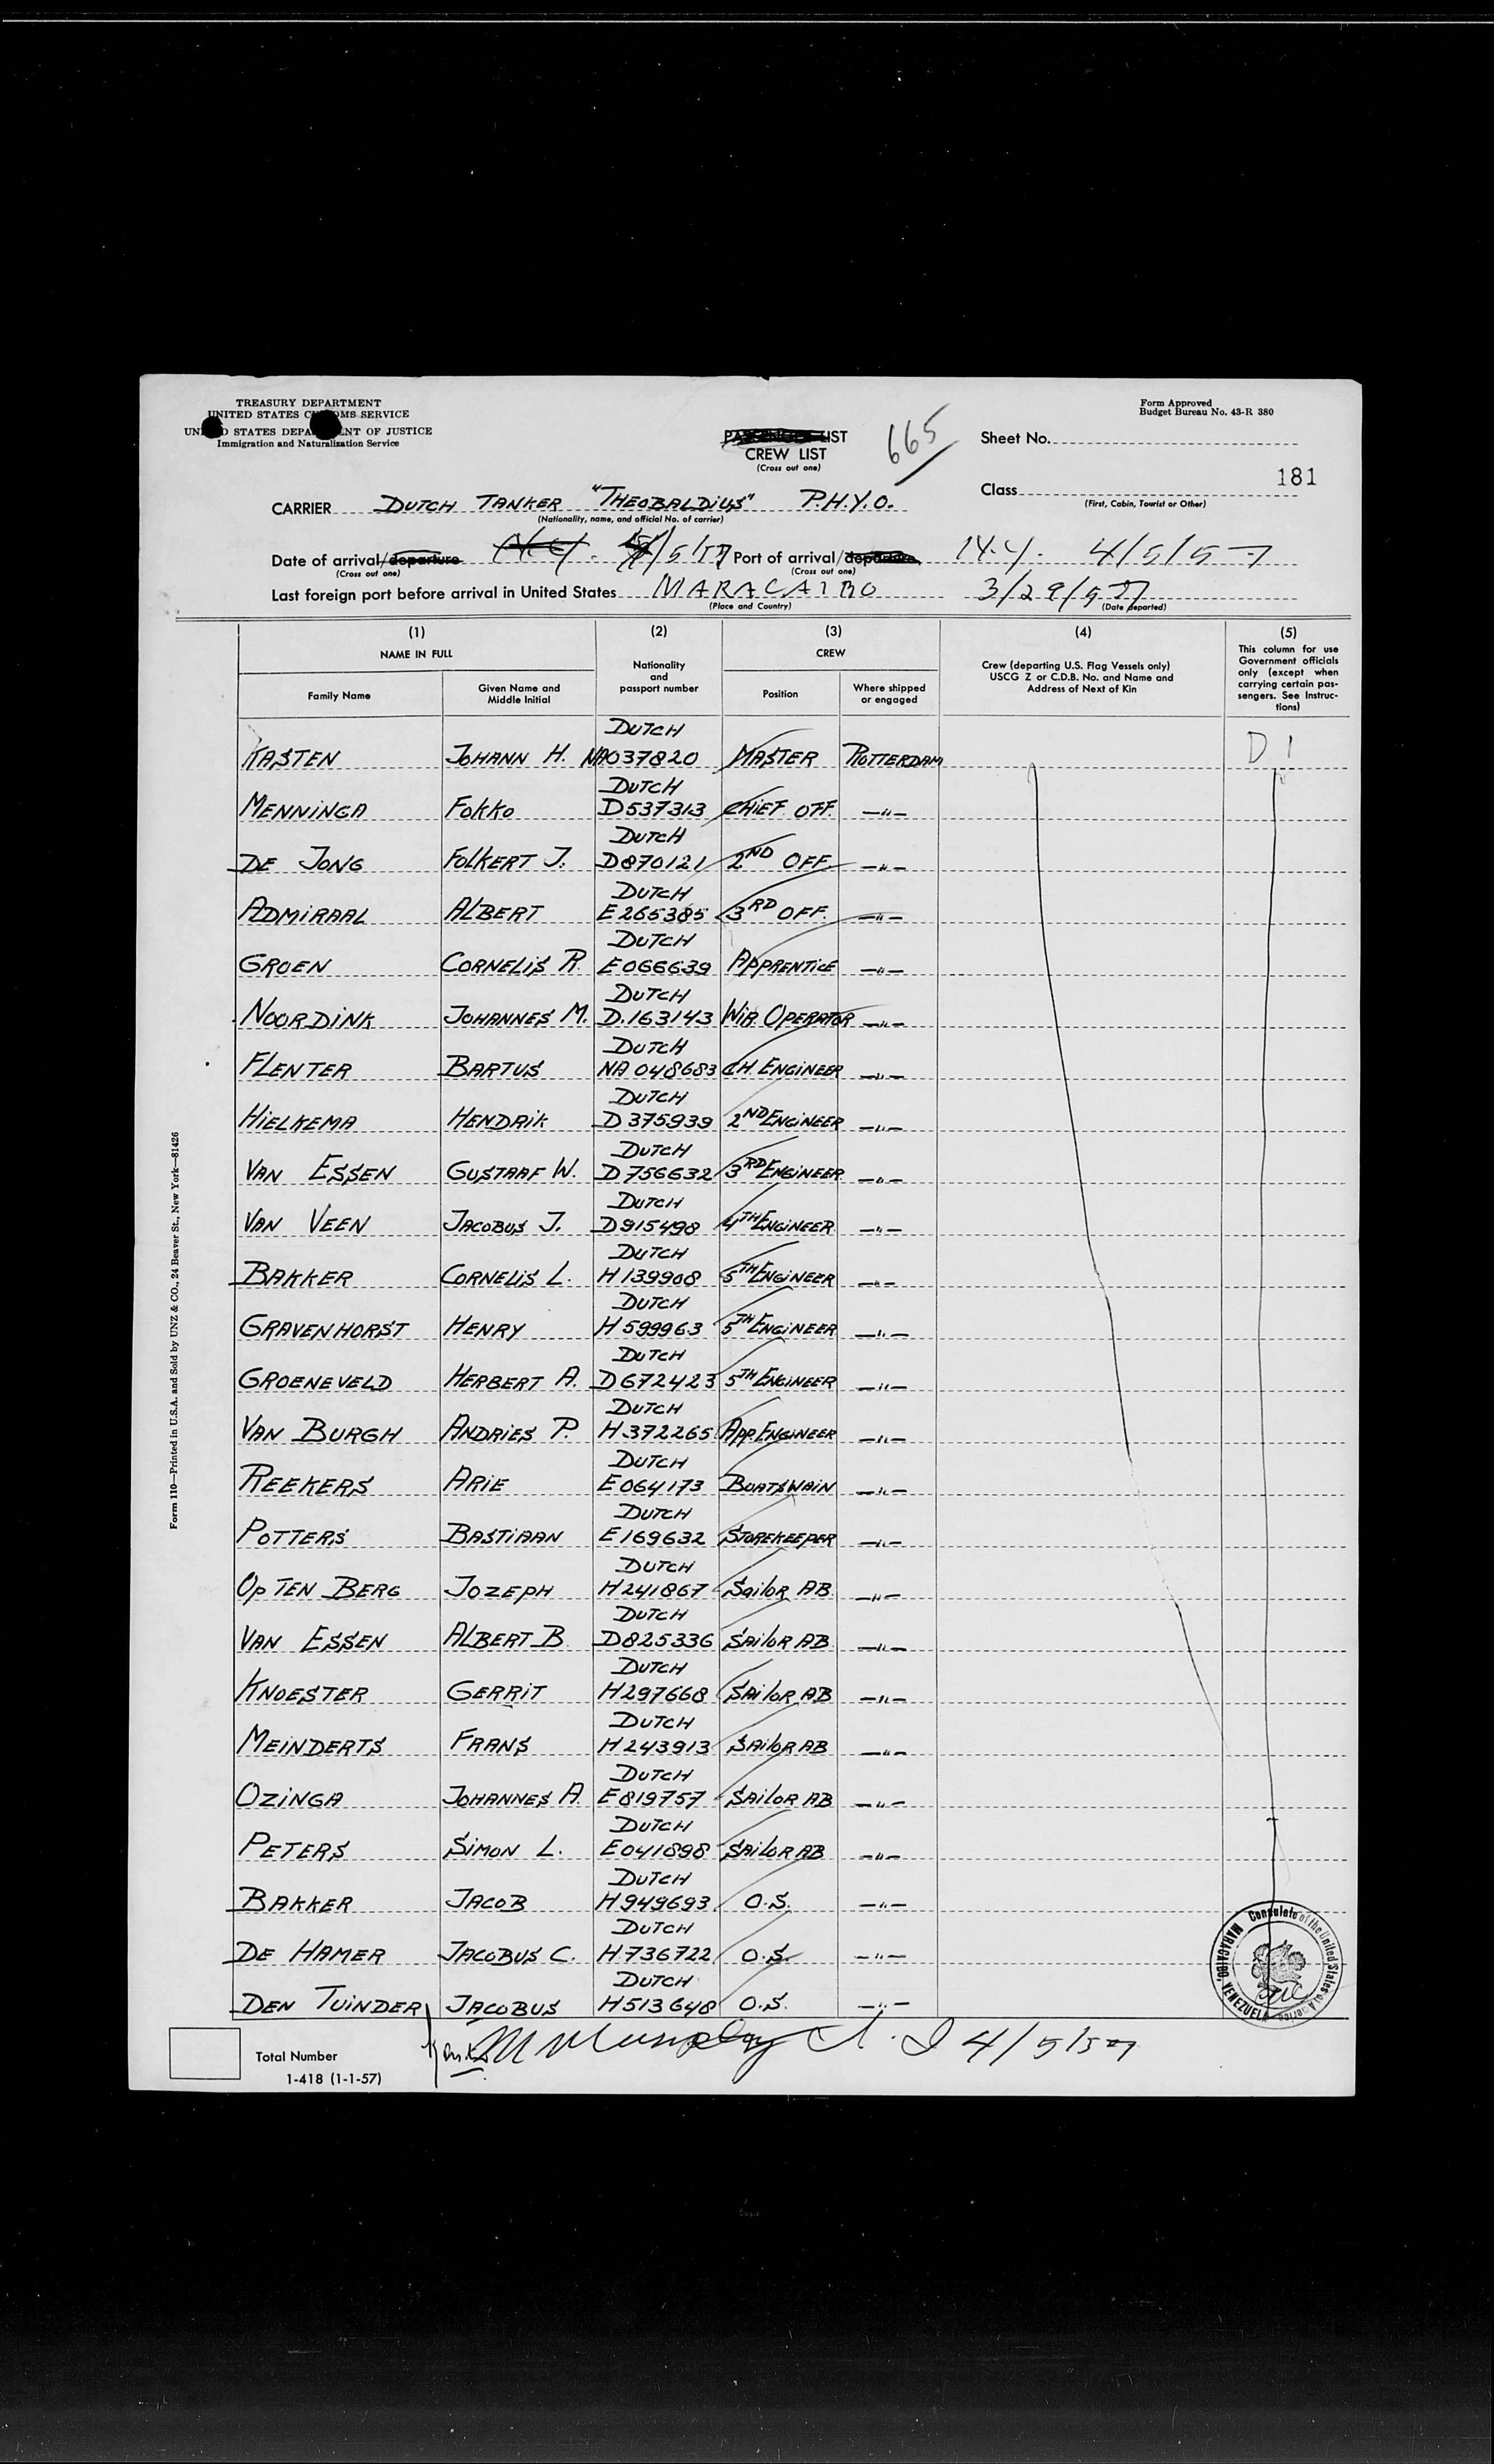 TREASURY DEPARTMENT
UNITED STATES CUSTOMS SERVICE
UNITED STATES DEPARTMENT OF JUSTICE
Immigration and Naturalization Service
Form Approved
Budget Bureau No. 43-R 380
PASSENGER LIST
CREW LIST
(Cross out one)
665
Sheet No.
181
Class
(First, Cabin, Tourist or Other)
CARRIER DUTCH TANKER "THEOBALDIUS" P.H.Y.O.
(Nationality, name, and official No. of carrier)
Date of arrival/departure 4/5/57 Port of arrival/departure N.Y. 4/5/57
(Cross out one) (Cross out one)
Last foreign port before arrival in United States MARACAIBO 3/29/57
(Place and Country) (Date departed)
(1) (2) (3) (4) (5)
NAME IN FULL
Nationality and passport number
CREW
Crew (departing U.S. Flag Vessels only) USCG Z or C.D.B. No. and Name and Address of Next of Kin
This column for use Government officials only (except when carrying certain passengers. See Instructions)
Family Name Given Name and Middle Initial Position Where shipped or engaged
DUTCH
KASTEN JOHANN H. NA037820 MASTER ROTTERDAM D 1
DUTCH
MENNINGA FOKKO D537313 CHIEF OFF. —"—
DUTCH
DE JONG FOLKERT J. D870121 2ND OFF. —"—
DUTCH
ADMIRAAL ALBERT E265385 3RD OFF. —"—
DUTCH
GROEN CORNELIS R. E066639 APPRENTICE —"—
DUTCH
NOORDINK JOHANNES M. D.163143 WIR. OPERATOR —"—
DUTCH
FLENTER BARTUS NA 048683 CH. ENGINEER —"—
DUTCH
HIELKEMA HENDRIK D375939 2ND ENGINEER —"—
DUTCH
VAN ESSEN GUSTAAF W. D756632 3RD ENGINEER —"—
DUTCH
VAN VEEN JACOBUS J. D915498 4TH ENGINEER —"—
DUTCH
BAKKER CORNELIS L. H139908 5TH ENGINEER —"—
DUTCH
GRAVENHORST HENRY H599963 5TH ENGINEER —"—
DUTCH
GROENEVELD HERBERT A. D672423 5TH ENGINEER —"—
DUTCH
VAN BURGH ANDRIES P. H372265 APP. ENGINEER —"—
DUTCH
REEKERS ARIE E064173 BOATSWAIN —"—
DUTCH
POTTERS BASTIAAN E169632 STOREKEEPER —"—
DUTCH
OP TEN BERG JOZEPH H241867 SAILOR AB. —"—
DUTCH
VAN ESSEN ALBERT B. D825336 SAILOR AB. —"—
DUTCH
KNOESTER GERRIT H297668 SAILOR AB —"—
DUTCH
MEINDERTS FRANS H243913 SAILOR AB —"—
DUTCH
OZINGA JOHANNES A. E819757 SAILOR AB —"—
DUTCH
PETERS SIMON L. E041898 SAILOR AB —"—
DUTCH
BAKKER JACOB H949693 O.S. —"—
DUTCH
DE HAMER JACOBUS C. H736722 O.S. —"—
DUTCH
DEN TUINDER JACOBUS H513648 O.S. —"—
Consulate of the United States of America
MARACAIBO, VENEZUELA
4/5/57
Total Number
1-418 (1-1-57)
Form 110—Printed in U.S.A. and Sold by UNZ & CO., 24 Beaver St., New York—81426